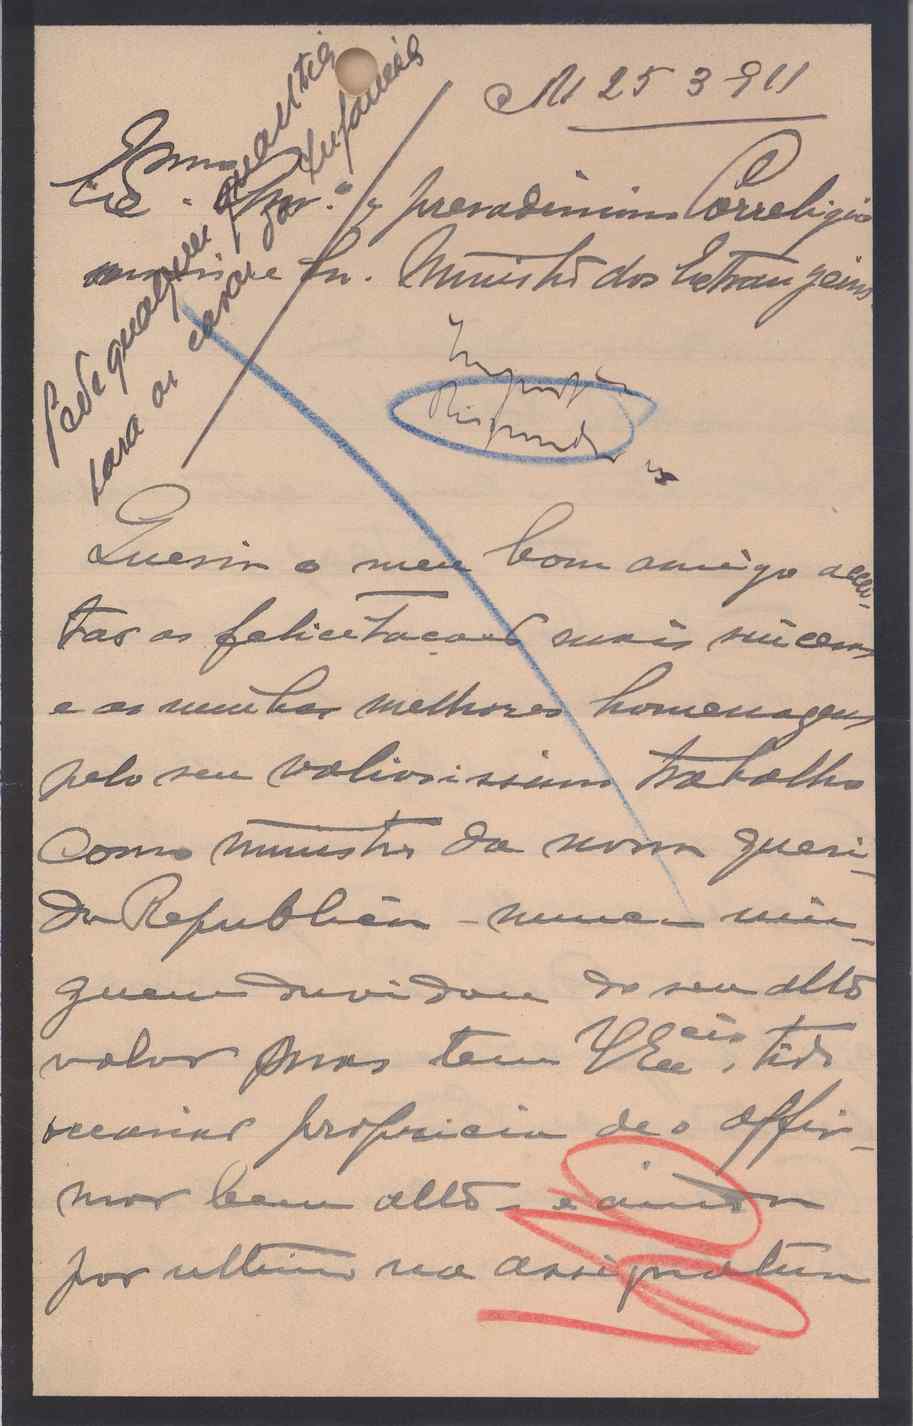 Pede qualquer quantia
para as casas da Infancia
M 25 3 911
Exmo
Snr. e presadissimo Correligio
nario e Sr. Ministro dos Extrangeiros
Respondida
Queira o meu bom amigo accei-
tar as felicitações mais sinceras
e as minhas melhores homenagens
pelo seu valiosissimo trabalho
como ministro da nossa queri-
da Republica - nunca nin-
guem duvidou do seu alto
valor mas tem V Excia, tido
occasião propicia de o affir-
mar bem alto - e ainda
por ultimo na assignatura